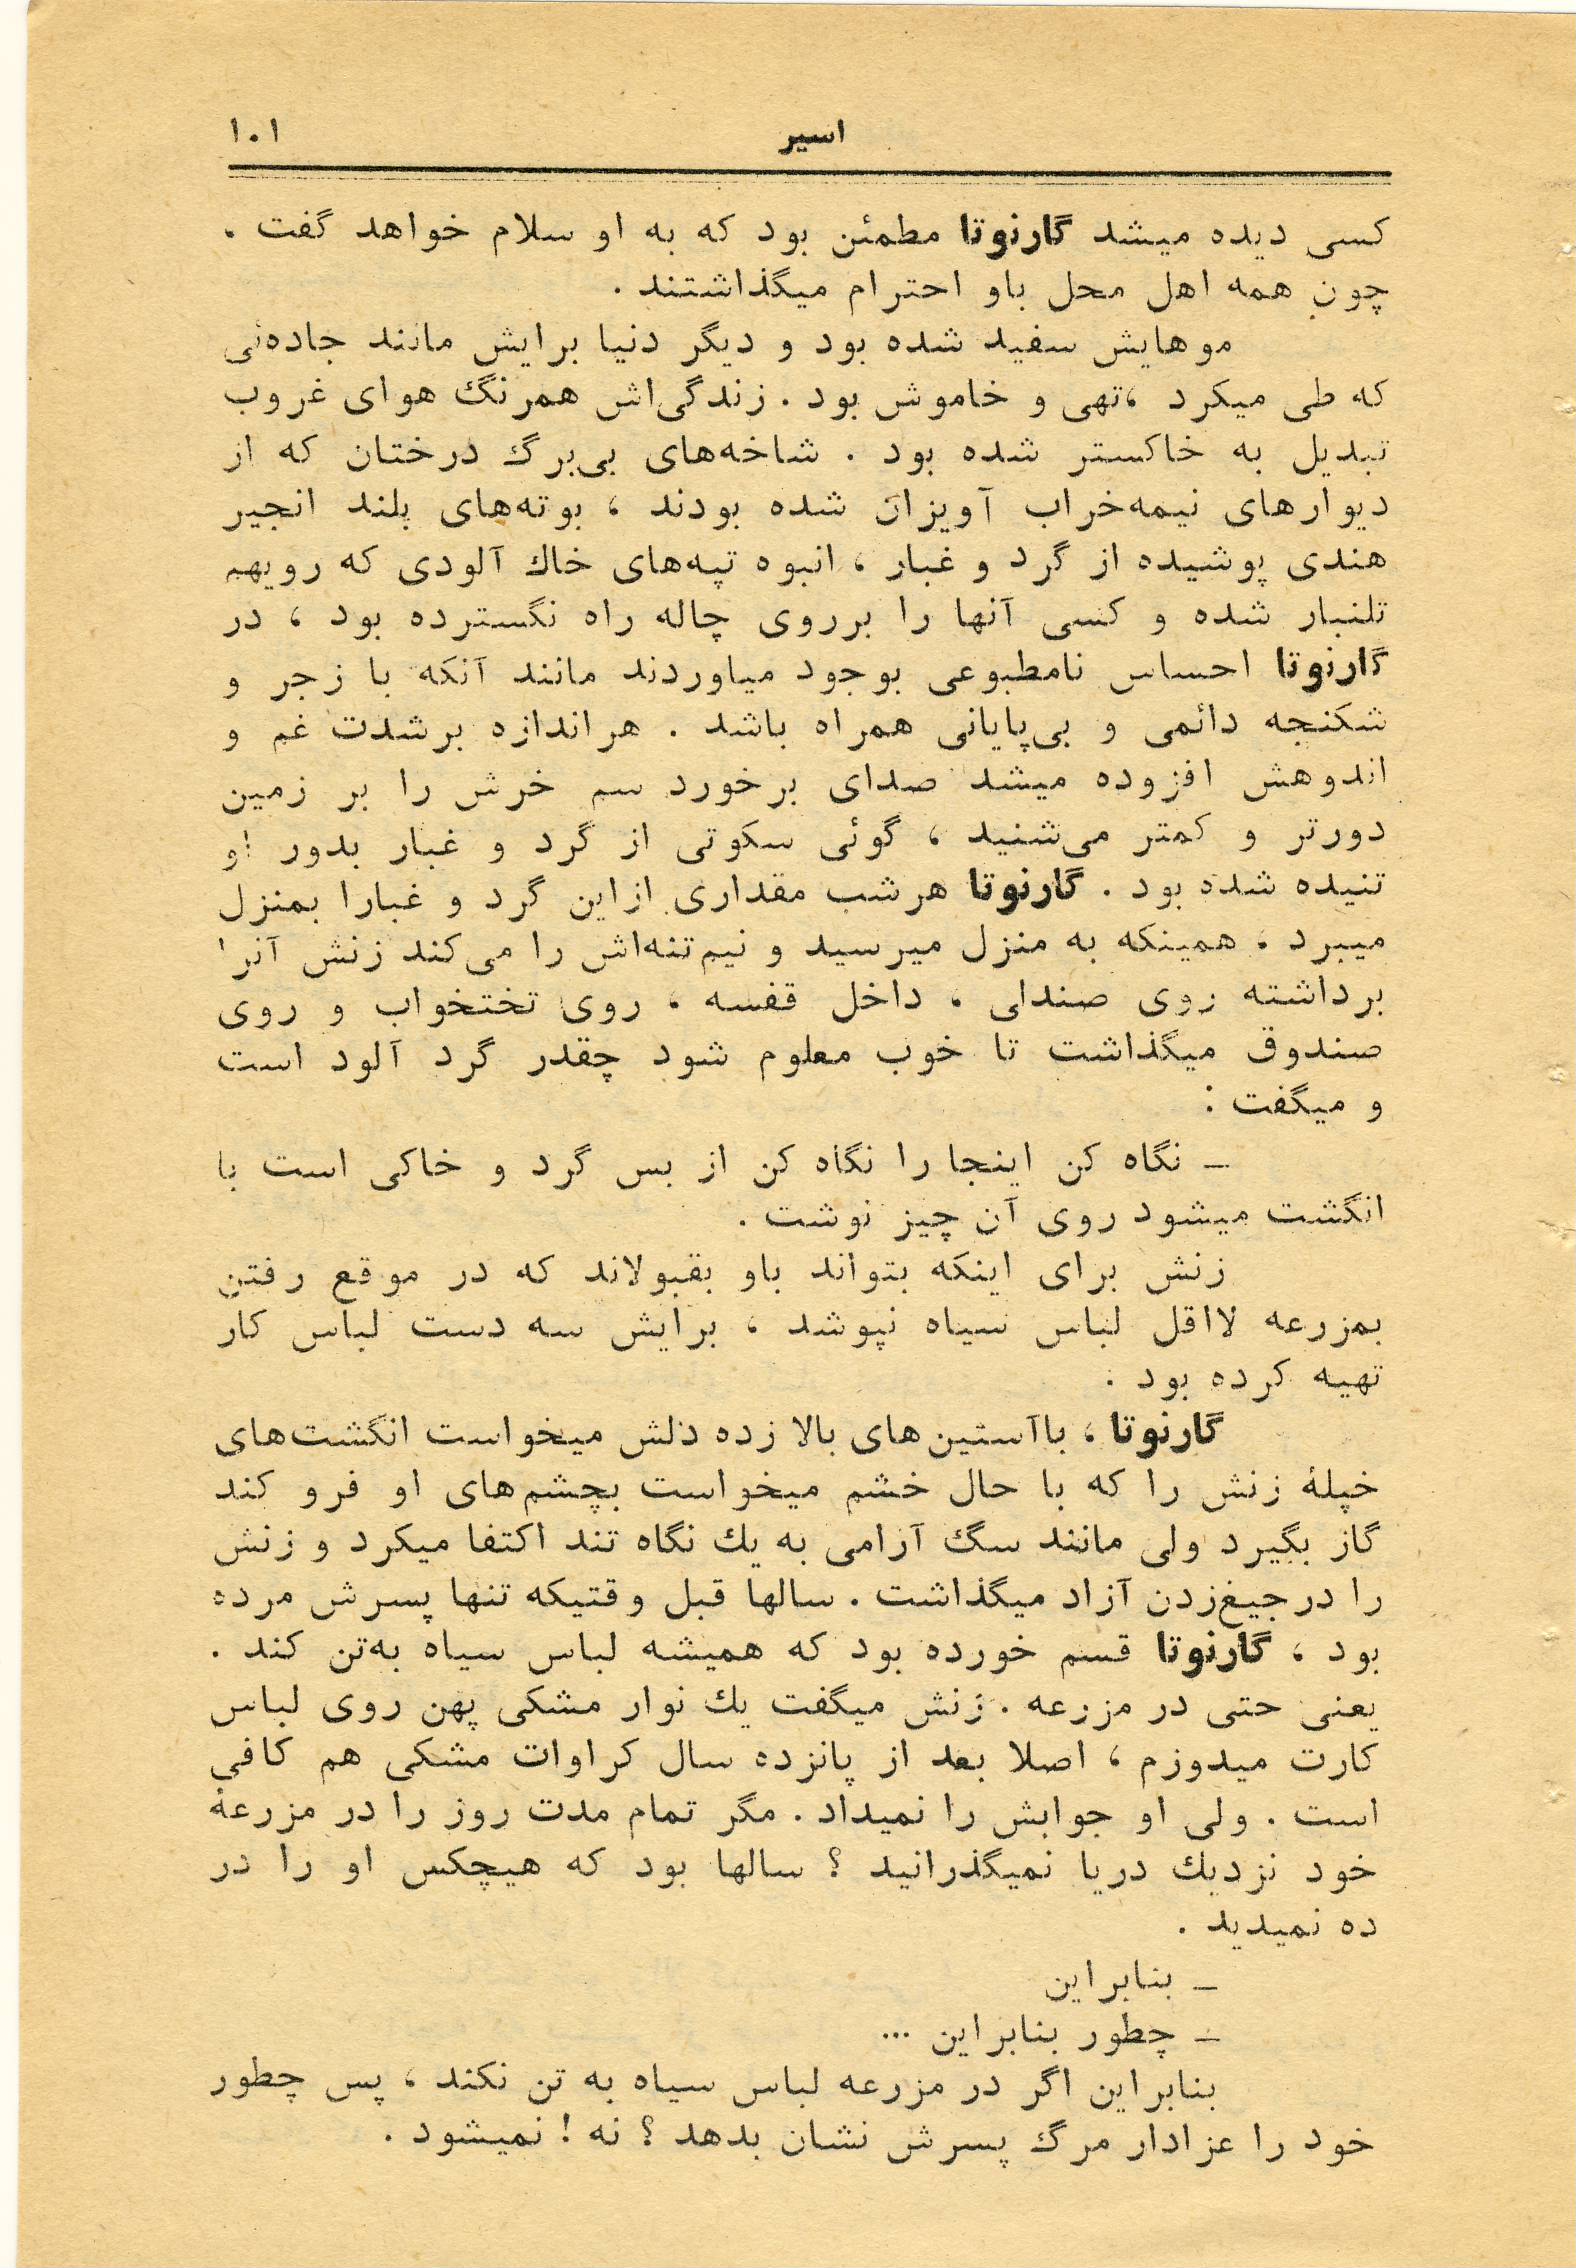 اسیر ۱۰۱
کسی دیده میشد گارنوتا مطمئن بود که به او سلام خواهد گفت .
چون همه اهل محل باو احترام میگذاشتند .
موهایش سفید شده بود و دیگر دنیا برایش مانند جاده‌ئی
که طی میکرد ،تهی و خاموش بود . زندگی‌اش همرنگ هوای غروب
تبدیل به خاکستر شده بود . شاخه‌های بی‌برگ درختان که از
دیوارهای نیمه‌خراب آویزان شده بودند ، بوته‌های بلند انجیر
هندی پوشیده از گرد و غبار ، انبوه تپه‌های خاك آلودی که رویهم
تلنبار شده و کسی آنها را برروی چاله راه نگسترده بود ، در
گارنوتا احساس نامطبوعی بوجود میاوردند مانند آنکه با زجر و
شکنجه دائمی و بی‌پایانی همراه باشد . هراندازه برشدت غم و
اندوهش افزوده میشد صدای برخورد سم خرش را بر زمین
دورتر و کمتر می‌شنید ، گوئی سکوتی از گرد و غبار بدور او
تنیده شده بود . گارنوتا هرشب مقداری ازاین گرد و غبارا بمنزل
میبرد ، همینکه به منزل میرسید و نیم‌تنه‌اش را می‌کند زنش آنرا
برداشته روی صندلی ، داخل قفسه ، روی تختخواب و روی
صندوق میگذاشت تا خوب معلوم شود چقدر گرد آلود است
و میگفت :
ـ نگاه کن اینجا را نگاه کن از بس گرد و خاکی است با
انگشت میشود روی آن چیز نوشت .
زنش برای اینکه بتواند باو بقبولاند که در موقع رفتن
بمزرعه لااقل لباس سیاه نپوشد ، برایش سه دست لباس کار
تهیه کرده بود .
گارنوتا ، باآستین‌های بالا زده دلش میخواست انگشت‌های
خپلهٔ زنش را که با حال خشم میخواست بچشم‌های او فرو کند
گاز بگیرد ولی مانند سگ آرامی به یك نگاه تند اکتفا میکرد و زنش
را درجیغ‌زدن آزاد میگذاشت . سالها قبل وقتیکه تنها پسرش مرده
بود ، گارنوتا قسم خورده بود که همیشه لباس سیاه به‌تن کند .
یعنی حتی در مزرعه . زنش میگفت یك نوار مشکی پهن روی لباس
کارت میدوزم ، اصلا بعد از پانزده سال کراوات مشکی هم کافی
است . ولی او جوابش را نمیداد . مگر تمام مدت روز را در مزرعهٔ
خود نزدیك دریا نمیگذرانید ؟ سالها بود که هیچکس او را در
ده نمیدید .
ـ بنابراین
ـ چطور بنابراین ...
بنابراین اگر در مزرعه لباس سیاه به تن نکند ، پس چطور
خود را عزادار مرگ پسرش نشان بدهد ؟ نه ! نمیشود .